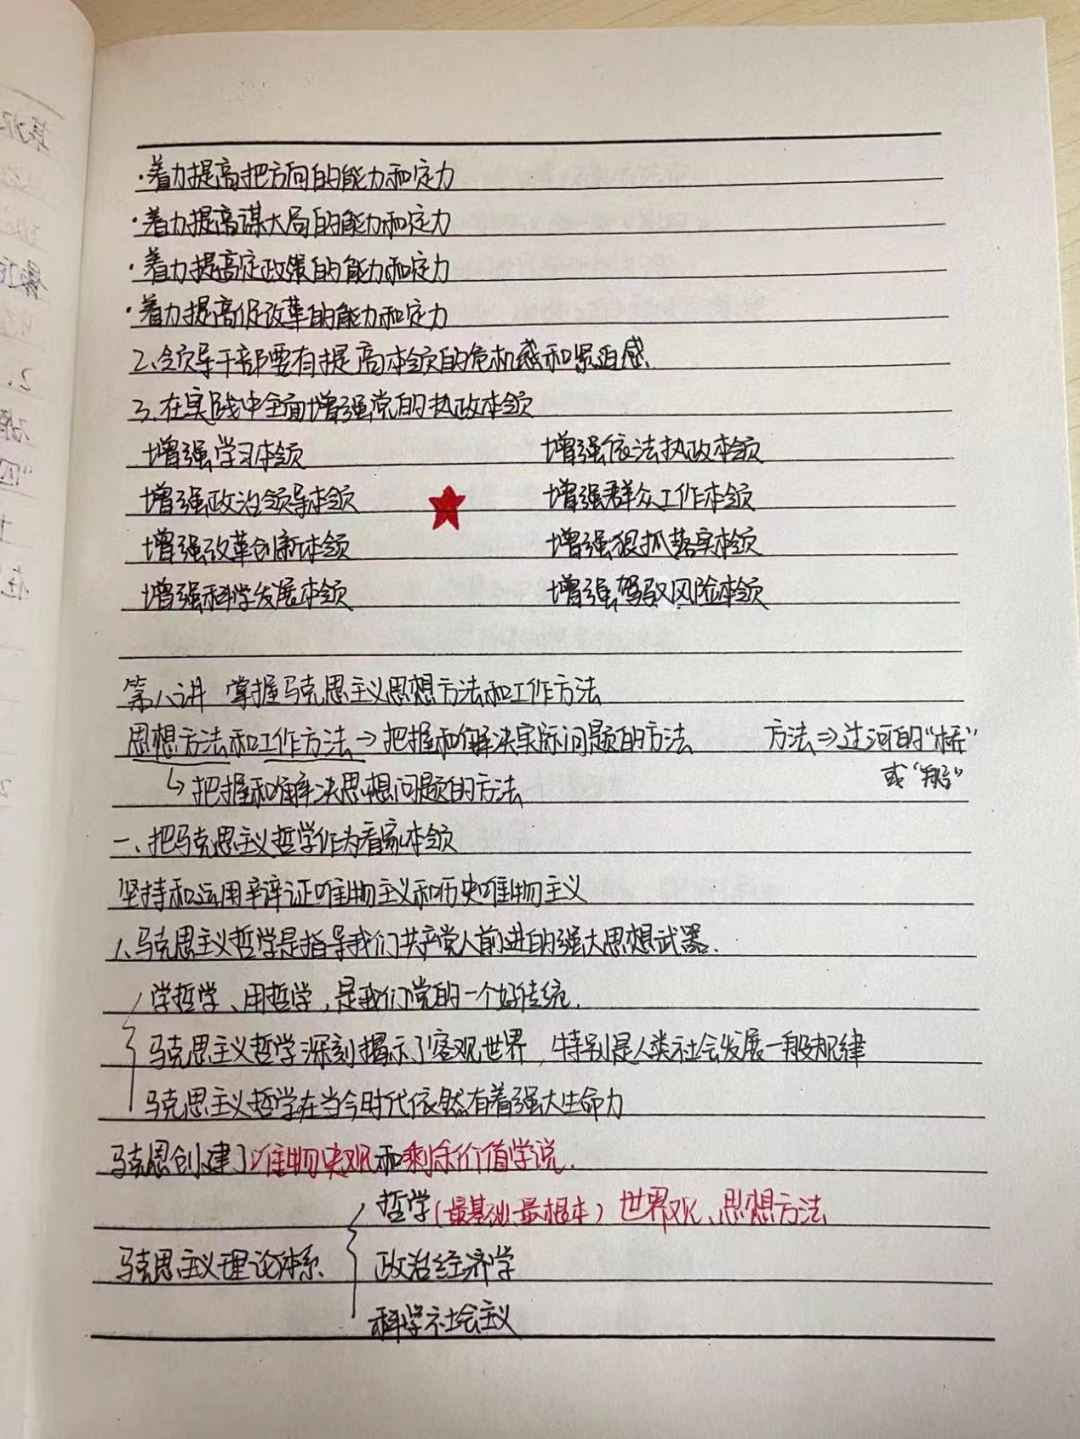 ·着力提高把方向的能力和定力
·着力提高谋大局的能力和定力
·着力提高定政策的能力和定力
·着力提高促改革的能力和定力
2、领导干部要有提高本领的危机感和紧迫感
3、在实践中全面增强党的执政本领
增强学习本领 增强依法执政本领
增强政治领导本领 增强群众工作本领
增强改革创新本领 增强狠抓落实本领
增强科学发展本领 增强驾驭风险本领
第八讲 掌握马克思主义思想方法和工作方法
思想方法和工作方法→把握和解决实际问题的方法 方法⇒过河的"桥"
或"船"
↳把握和解决思想问题的方法
一、把马克思主义哲学作为看家本领
坚持和运用辩证唯物主义和历史唯物主义
1、马克思主义哲学是指导我们共产党人前进的强大思想武器.
学哲学、用哲学,是我们党的一个好传统.
马克思主义哲学深刻揭示了客观世界,特别是人类社会发展一般规律
马克思主义哲学在当今时代依然有着强大生命力
马克思创建了唯物史观和剩余价值学说.
哲学(最基础、最根本) 世界观、思想方法
马克思主义理论体系 政治经济学
科学社会主义